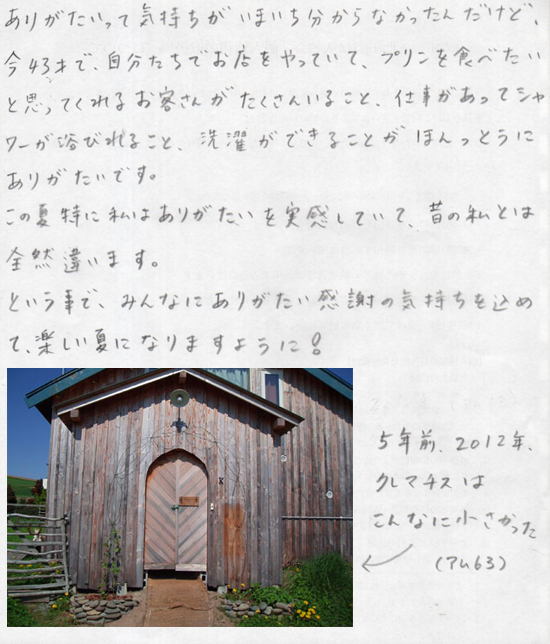 ありがたいって気持ちがいまいち分からなかったんだけど、
今43才で、自分たちでお店をやっていて、プリンを食べたい
と思ってくれるお客さんがたくさんいること、仕事があってシャ
ワーが浴びれること、洗濯ができることがほんっとうに
ありがたいです。
この夏特に私はありがたいを実感していて、昔の私とは
全然違います。
という事で、みんなにありがたい感謝の気持ちを込め
て、楽しい夏になりますように!
5年前、2012年、
クレマチスは
こんなに小さかった
(アム63)